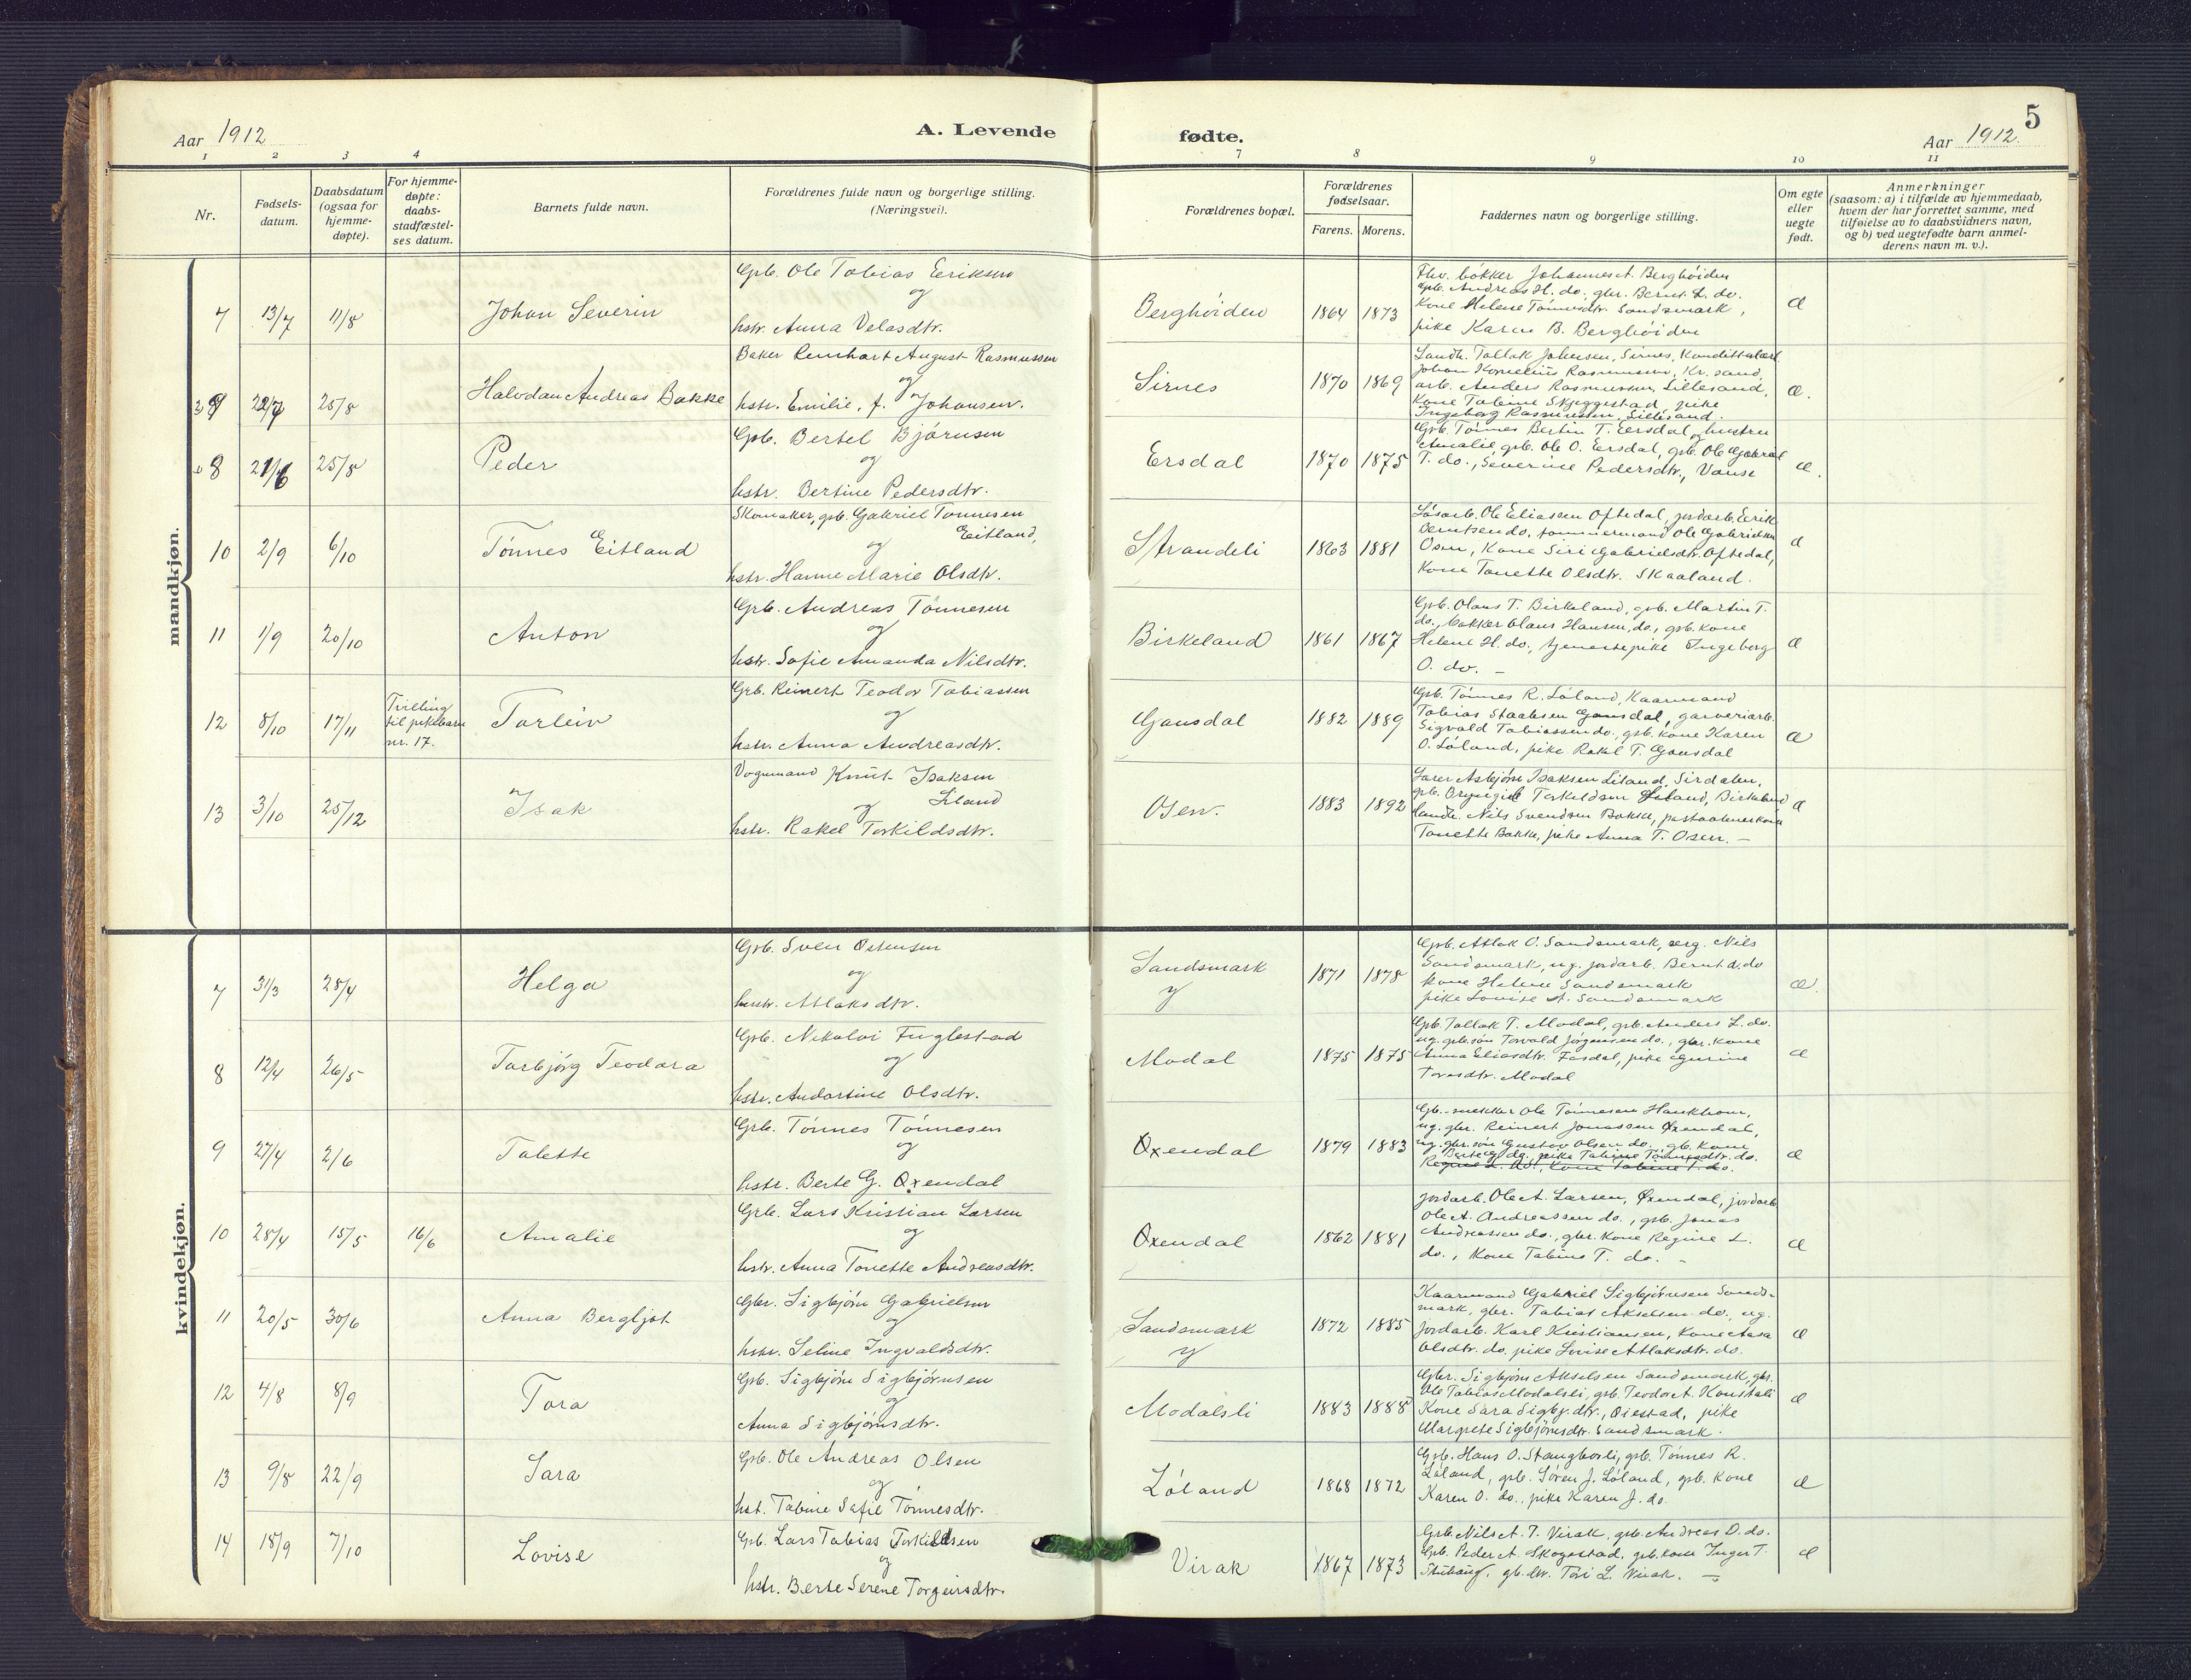 Aar 1912
A. Levende
fødte.
Aar 1912.
5
1 2 3 4
7 8 9 10 11
Nr.
Fødsels-
datum.
Daabsdatum
(ogsaa for
hjemme-
døpte).
For hjemme-
døpte:
daabs-
stadfæstel-
ses datum.
Barnets fulde navn.
Forældrenes fulde navn og borgerlige stilling.
(Næringsvei).
Forældrenes bopæl.
Forældrenes
fødselsaar.
Farens. Morens.
Faddernes navn og borgerlige stilling.
Om egte
eller
uegte
født.
Anmerkninger
(saasom: a) i tilfælde av hjemmedaab,
hvem der har forrettet samme, med
tilføielse av to daabsvidners navn,
og b) ved uegtefødte barn anmel-
derens navn m. v.).
mandkjøn.
7 13/7 11/8 Johan Severin
Gpb. Ole Tobias Eriksen
og
hstr. Anna Velasdtr.
Berghöiden 1864 1873
Fhv. bókker Johannes A. Berghöiden
gpb. Andreas H. do. gbr. Bernt L. do.
Kone Helene Tönnesdtr. Sandsmark,
pike Karen B. Berghöiden
æ
9 22/7 25/8 Halvdan Andreas Bakke
Baker Reinhart August Rasmussen
og
hstr. Emilie, f. Johansen.
Sirnes 1870 1869
Landh. Tollak Johnsen, Sirnes,
Johan Kornelius Rasmussen, Kr. sand,
arb. Anders Rasmussen, Lillesand,
Kone Tobine Skjeggestad, pike
Ingeborg Rasmussen, Lillesand.
æ.
8 21/6 25/8 Peder
Gpb. Bertel Bjørnsen
og
hstr. Bertine Pedersdtr.
Ersdal 1870 1875
Gpb. Tönnes Bertin T. Eersdal og hustru
Amalie, gpb. Ole O. Ersdal, gpb. Ole Gabriel
T. do., Severine Pedersdtr., Vanse
æ.
10 2/9 6/10 Tönnes Eitland
Skomaker, gpb. Gabriel Tönnesen
Eitland,
og
hstr. Hanne Marie Olsdtr.
Strandeli 1863 1881
Løsarb. Ole Eliassen Oftedal, jordarb. Eerik
Berntsen do, tømmermand Ole Gabrielsen
Osen, Kone Siri Gabrielsdtr. Oftedal,
Kone Tonette Olsdtr. Skaaland.
æ
11 1/9 20/10 Anton
Grb. Andreas Tönnesen
og
hstr. Sofie Amanda Nilsdtr.
Birkeland 1861 1867
Gpb. Olaus T. Birkeland, gpb. Martin T.
do., bókker Claus Hansen, do., gpb. kone
Helene H. do., tjenestepike Ingeborg
O. do. -
æ
12 8/10 17/11
Tvilling
til pikebarn
nr. 17.
Torleiv
Grb. Reinert Teodor Tobiassen
og
hstr. Anna Andreasdtr.
Gausdal 1882 1889
Gpb. Tönnes R. Løland, Kaarmand
Tobias Staalesen Gausdal, garveriarb.
Sigvald Tobiassen do., gpb. kone Karen
O. Løland, pike Rakel T. Gausdal
æ
13 3/10 25/12 Isak
Vognmand Knut Isaksen
Liland
og
hstr. Rakel Torkildsdtr.
Osen. 1883 1892
Lærer Asbjørn Isaksen Liland, Sirdalen,
gpb. Bryngiel Torkildsen Liland, Birkeland
landh. Nils Svendsen Bakke,
Tonette Bakke, pike Anna T. Osen. -
æ
kvindekjøn.
7 31/3 28/4 Helga
Gpb. Sven Ostensen
og
hustr. Atlaksdtr.
Sandsmark
y
1871 1878
Gpb. Atlak O. Sandsmark, serg. Nils
Sandsmark, ug. jordarb. Bernt A. do
kone Helene Sandsmark
pike Lovise A. Sandsmark
æ.
8 12/4 26/5 Torbjörg Teodora
Gpb. Nikolai Fuglestad
og
hstr. Andortine Olsdtr.
Modal 1875 1875
Gpb. Tollak T. Modal, gpb. Anders L. do.
ug. gpb. søn Torvald Jörgensen do., gbr. kone
Anna Eliasdtr. Fasdal, pike Gurine
Toresdtr. Modal
æ
9 27/4 2/6 Talette
Grb. Tönnes Tönnesen
og
hstr. Berte G. Øxendal
Øxendal 1879 1883
Gb.-snekker Ole Tönnesen Haukhom,
ug. gbr. Reinert Jonassen Øxendal,
ug. gbr. søn Gustav Olsen do. gb. kone
Berte G. do. pike Tabine Tönnesdtr. do.
Regine L. do., Kone Tabine T. do.
æ
10 28/4 15/5 16/6 Amalie
Grb. Lars Kristian Larsen
og
hstr. Anna Tonette Andreasdtr.
Øxendal 1862 1881
Jordarb. Ole A. Larsen, Øxendal, jordarb
Ole A. Andreassen do., gpb. Jonas
Andreassen do., gbr. Kone Regine L.
do., Kone Tabine T. do. -
æ
11 20/5 30/6 Anna Bergljot
Gbr. Sigbjörn Gabrielsen
og
hstr. Seline Ingvaldsdtr.
Sandsmark
y
1872 1885
Kaarmand Gabriel Sigbjörnsen Sands-
mark, gbr. Tobias Akselsen do., ug.
jordarb. Karl Kristiansen, Kone Aasa
Olsdtr. do. pike Lovise Atlaksdtr. do.
æ
12 4/8 8/9 Tora
Gpb. Sigbjörn Sigbjörnsen
og
Anna Sigbjörnsdtr.
Modalsli 1883 1888
Gbr. Sigbjörn Akselsen Sandsmark, gbr.
Ole Tobias Modalsli, gpb. Teodor A. Konstali
Kone Sara Sigbj. dtr., Øiestad, pike
Margrete Sigbjörnsdtr. Sandsmark.
æ
13 9/8 22/9 Sara
Gpb. Ole Andreas Olsen
og
hst. Tabine Sofie Tönnesdtr.
Løland 1868 1872
Gpb. Hans O. Stangborli, gpb. Tönnes R.
Løland, gpb. Sören J. Løland, gpb. Kone
Karen O. do., pike Karen J. do.
æ
14 18/9 7/10 Lovise
Gpb. Lars Tobias Torkildsen
og
hstr. Berte Serene Torgeirsdtr.
Virak 1867 1873
Gpb. Nils A. T. Virak, gpb. Andreas D. do.
Gpb. Peder A. Skogestad, gpb. kone Inger T.
Stuhaug, gb. dtr. Tori L. Virak. -
æ